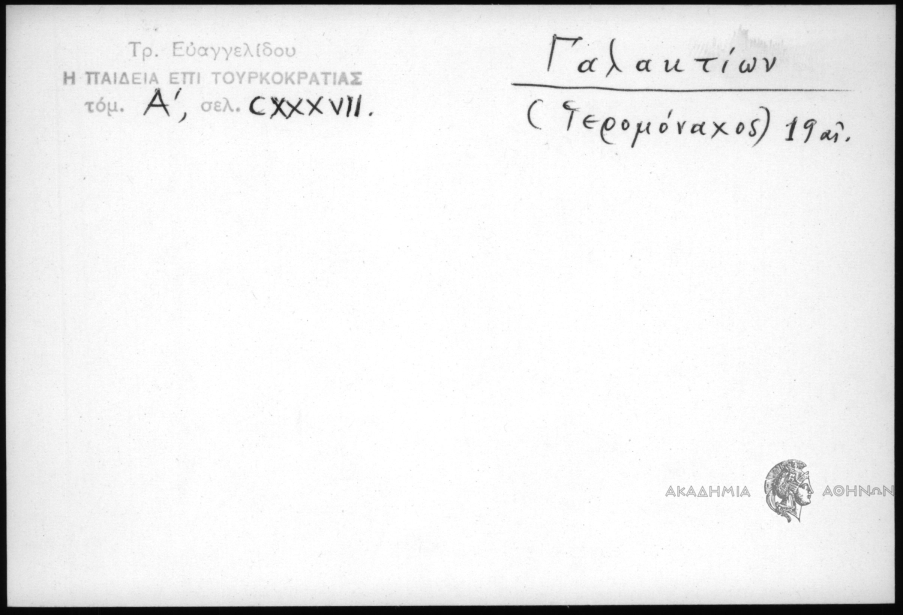 Τρ. Εὐαγγελίδου
Η ΠΑΙΔΕΙΑ ΕΠΙ ΤΟΥΡΚΟΚΡΑΤΙΑΣ
τόμ. Α', σελ. CXXXVII.
Γαλακτίων
(Ἱερομόναχος) 19 αἰ.
ΑΚΑΔΗΜΙΑ ΑΘΗΝΩΝ